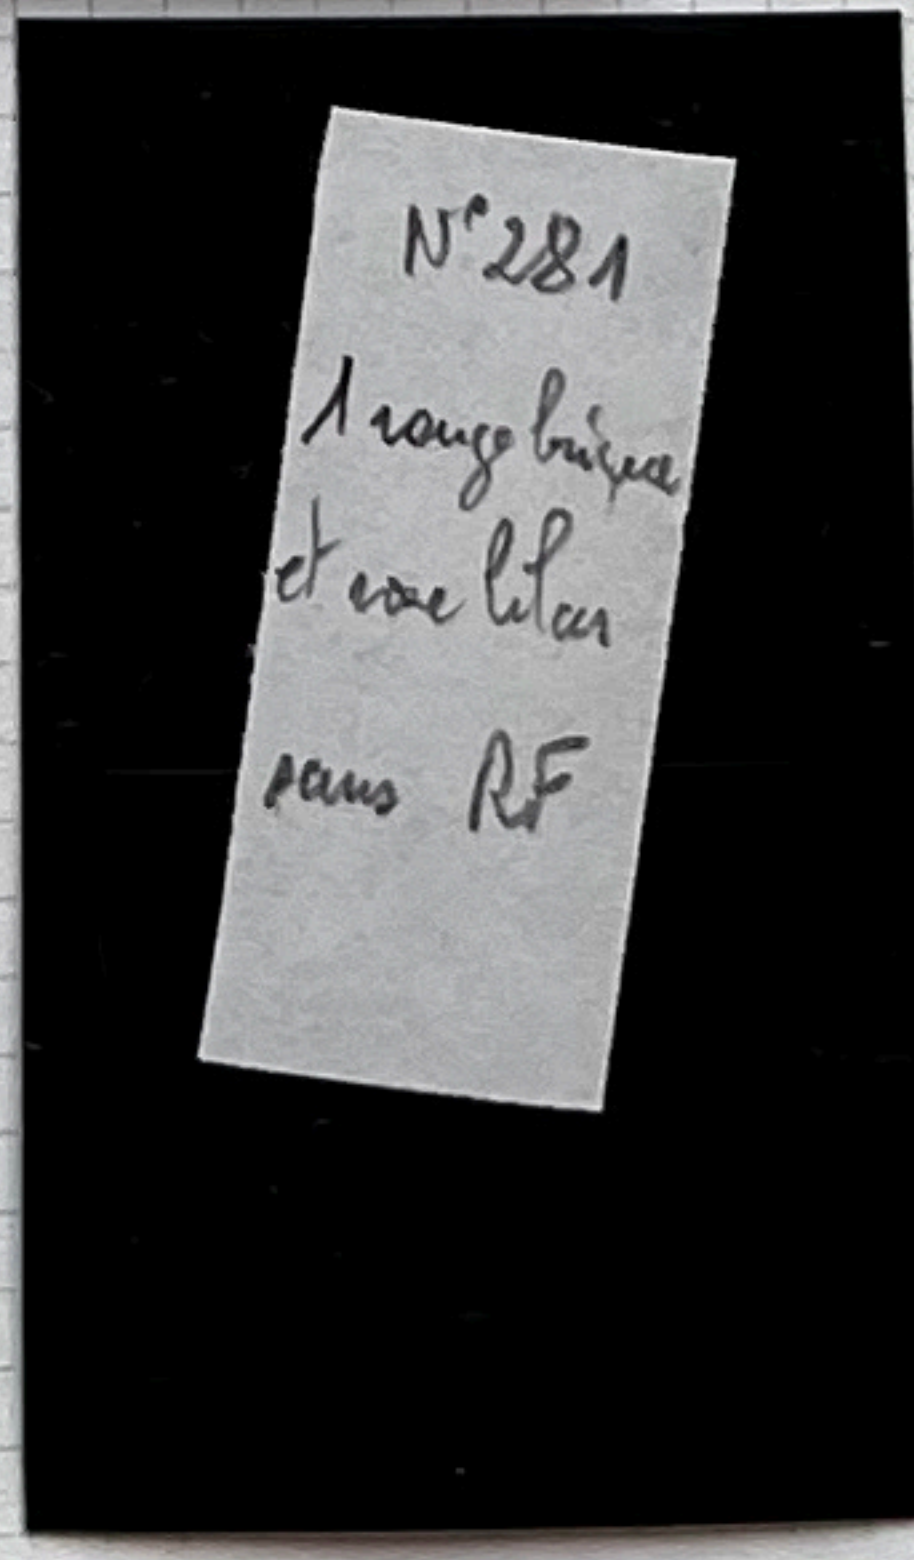 N° 281
1 rouge brique
et rose lilas
sans RF